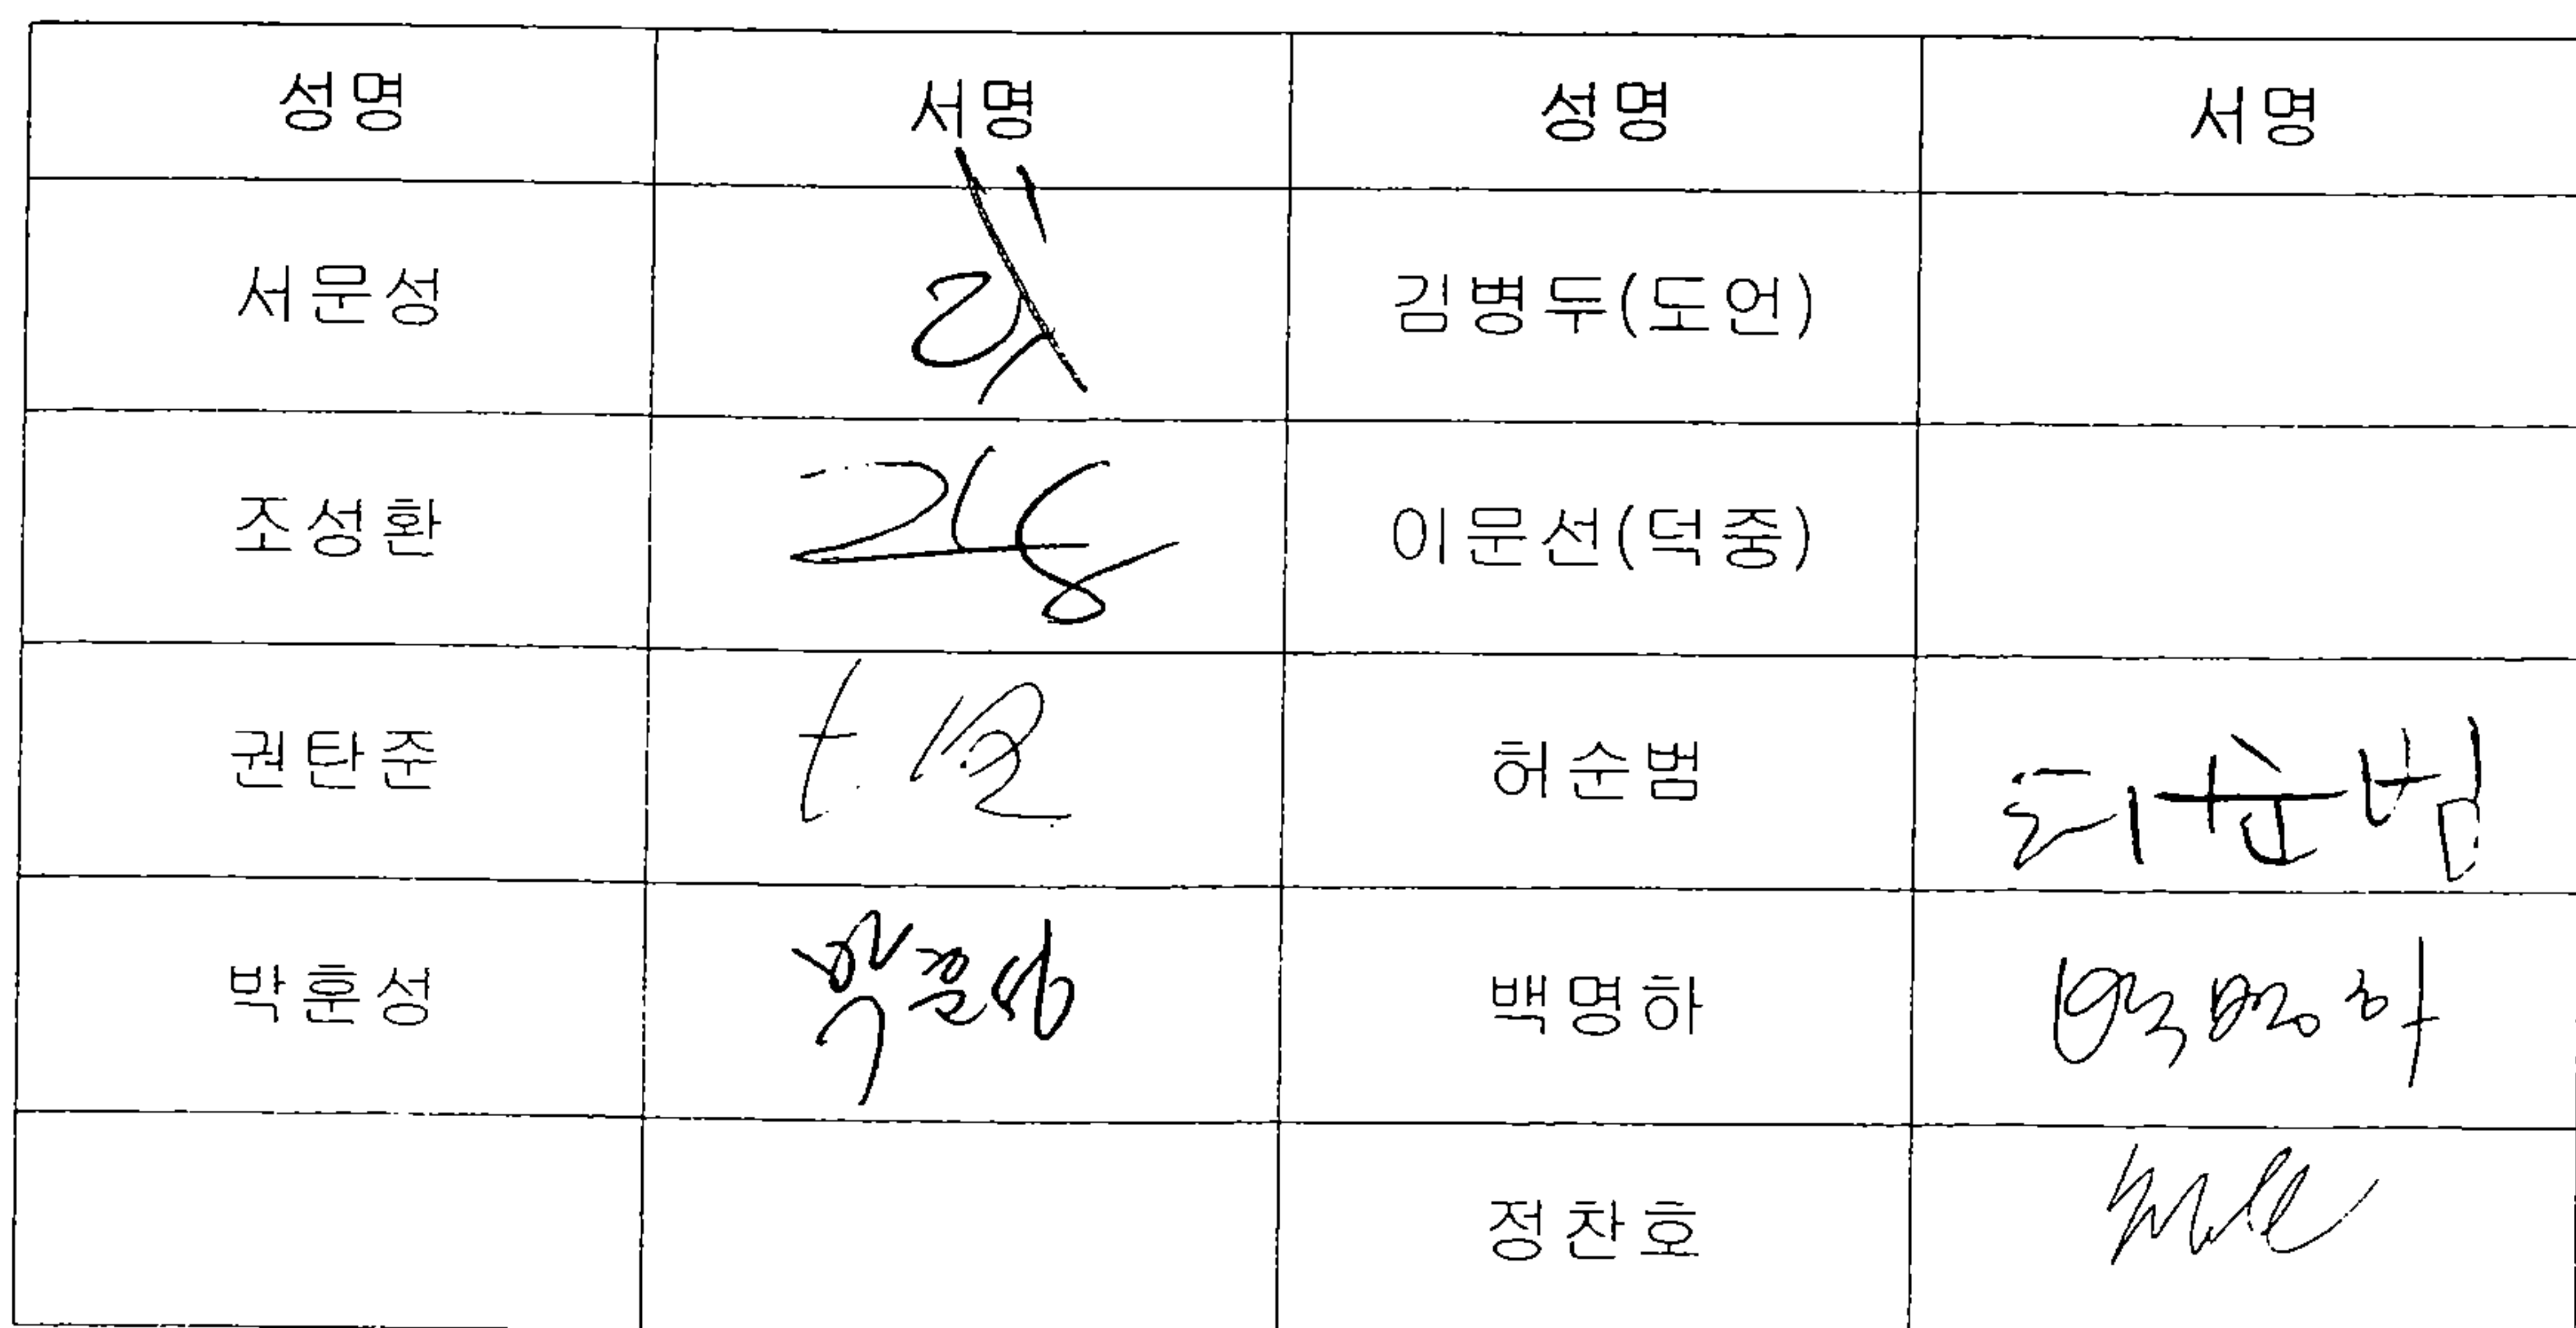 성명 서명 성명 서명
서문성 김병두(도언)
조성환 이문선(덕중)
권탄준 허순범 허순범
박훈성 박훈성 백명하 백명하
정찬호